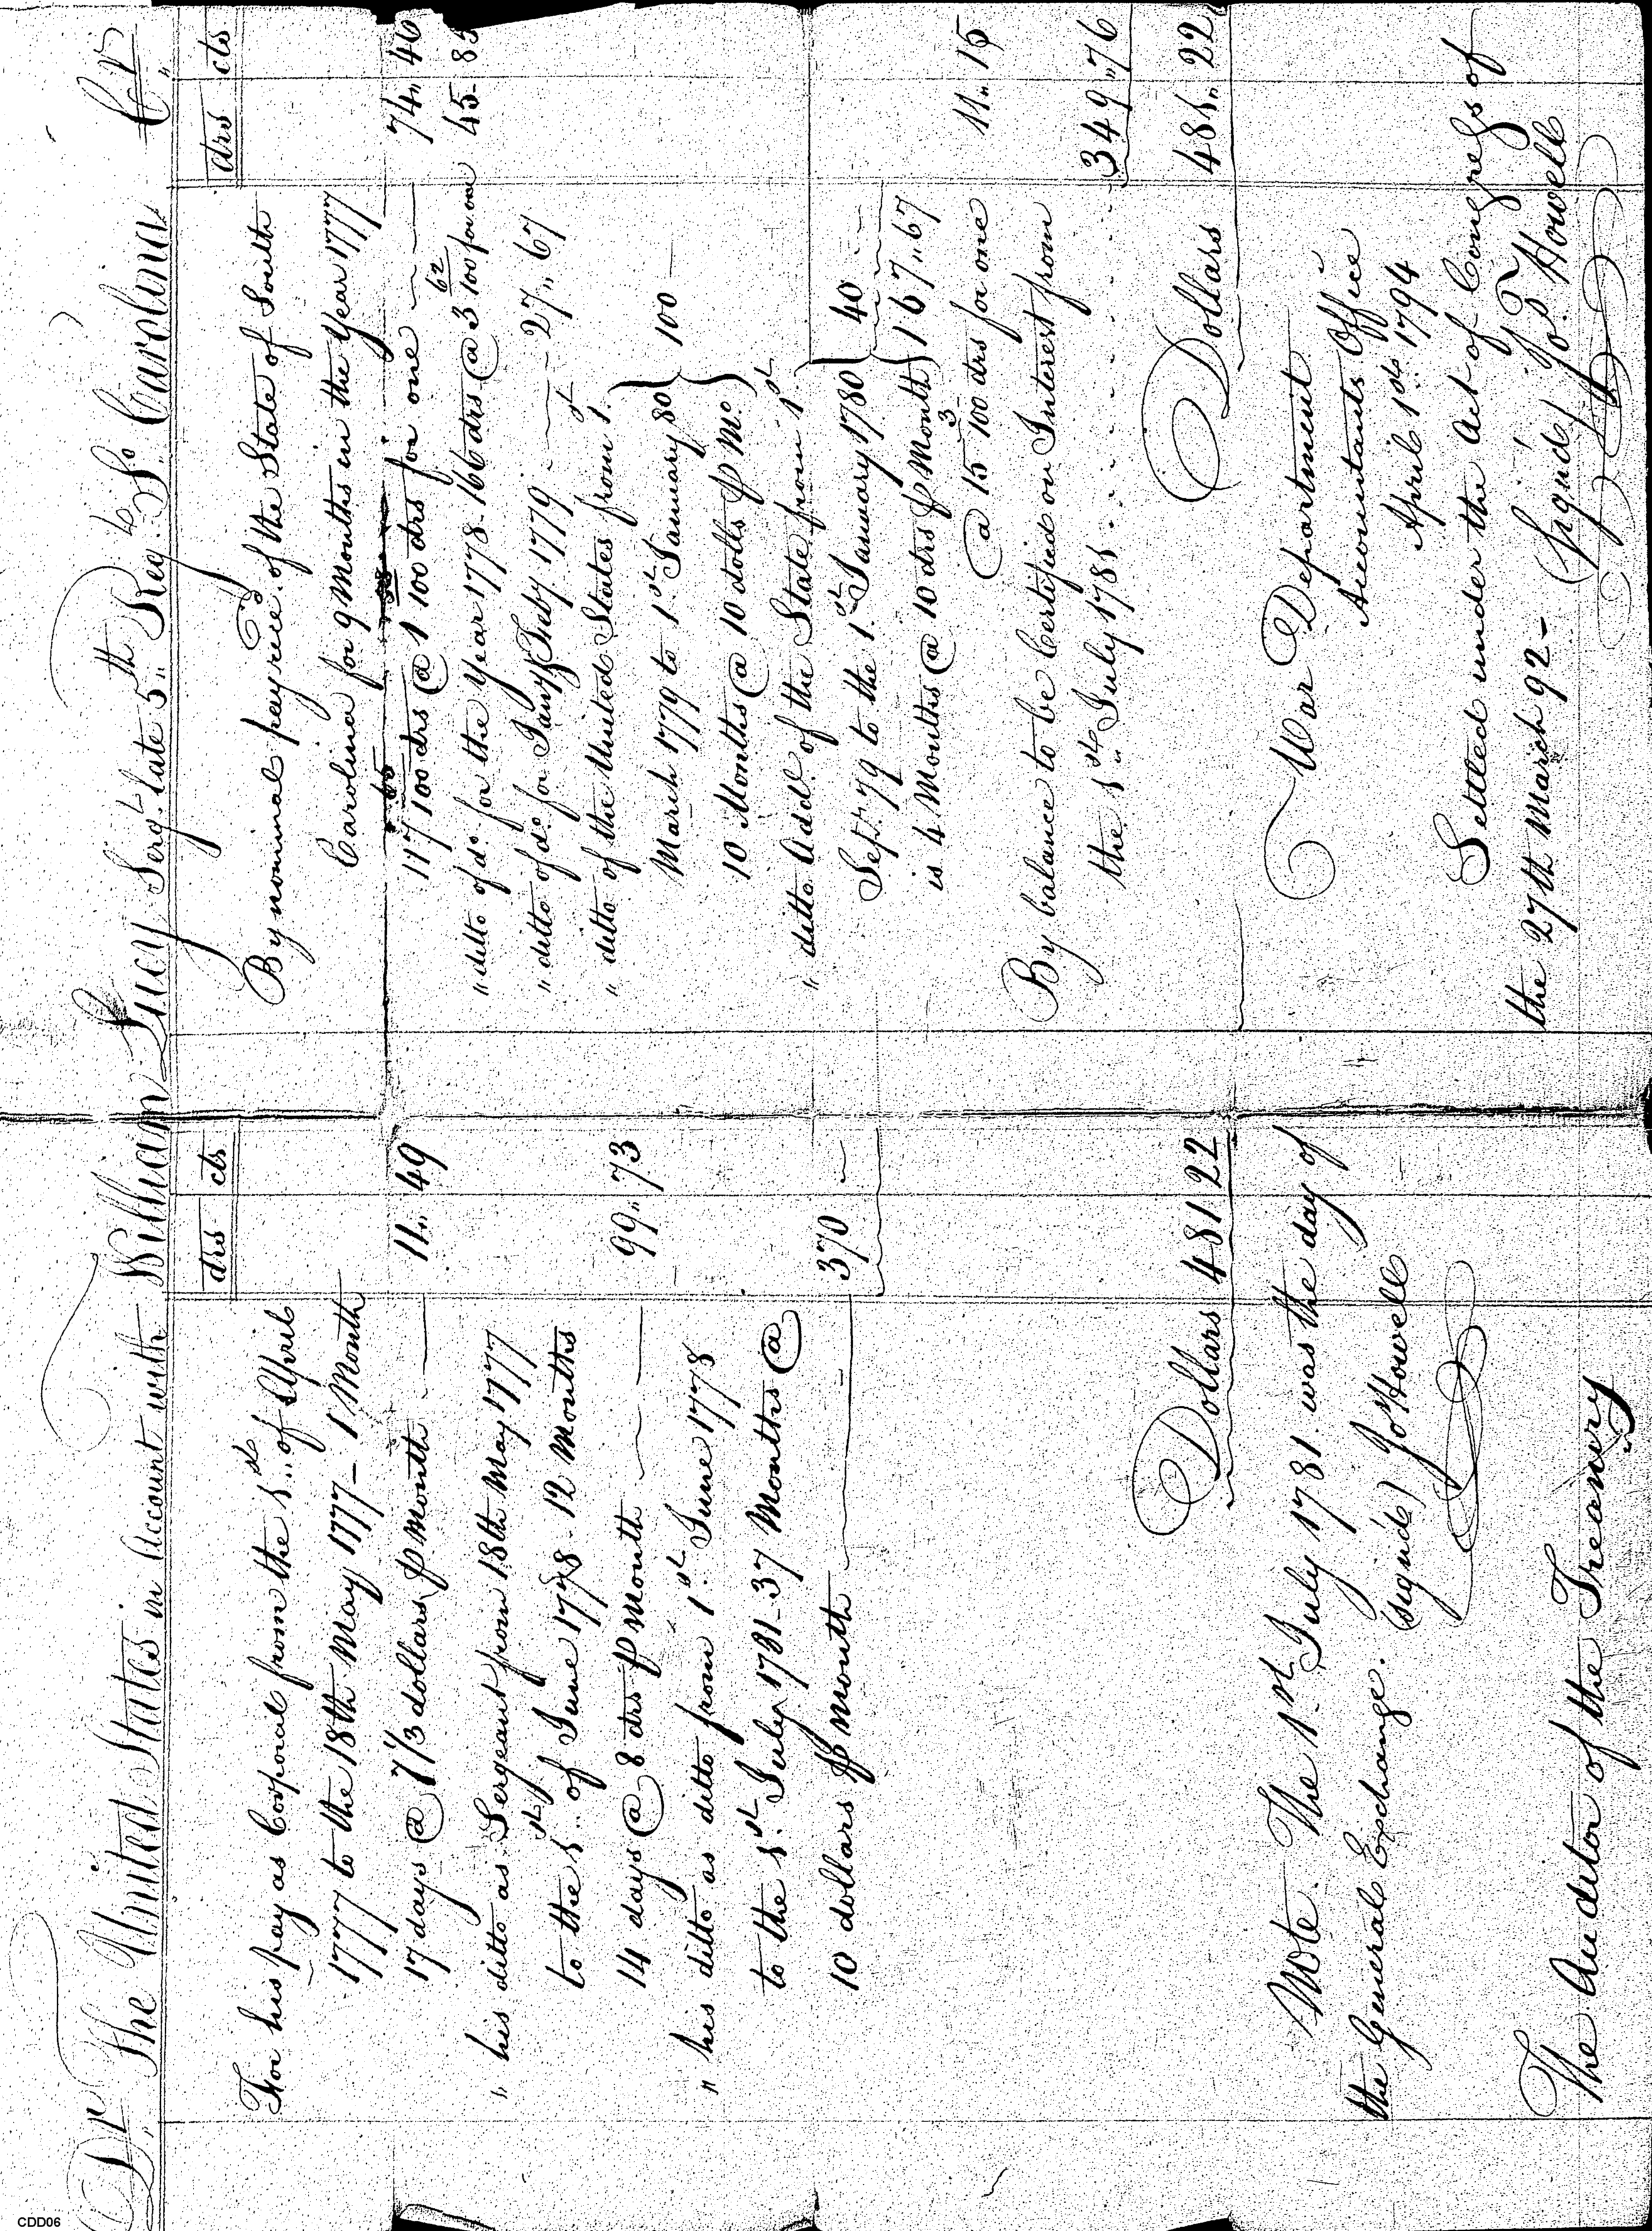 Dr. The United States in Account with William Lucy Sergt. late 5th Regt. So. Carolina Cr.
drs cts
For his pay as Corporal from the 1st of April
1777 to the 18th May 1777 - 1 Month
17 days @ 7 1/3 dollars P month 11 49
" his ditto as Sergeant from 18th May 1777
to the 1st of June 1778 - 12 Months
14 days @ 8 drs P month 99 73
" his ditto as ditto from 1st June 1778
to the 1st July 1781 - 37 Months @
10 dollars P month 370
Dollars 481 22
Note. The 1st July 1781. was the day of
the General Exchange. (signed) Jo Howell
The Auditor of the Treasury
drs cts
By nominal pay recd. of the State of South
Carolina for 9 Months in the Year 1777
117 100 drs @ 1 100 drs for one 74 40
" ditto of do. for the Year 1778. 166 drs @ 3 62/100 for one 45 85
" ditto of do. for Jany & Feby. 1779 27 " 67
" ditto of the United States from 1st
March 1779 to 1st January 80 } 100
10 Months @ 10 dolls P Mo. }
" ditto Addl. of the State from 1st
Sept. 79 to the 1st January 1780 } 40
is 4 Months @ 10 drs P Month } 167 " 67
@ 15 3/100 drs for one 11 15
By balance to be Certified on Interest from
the 1st July 1781 349 " 76
Dollars 481 22
War Department
Accountants Office
April 1st 1794
Settled under the Act of Congress of
the 27th March 92 - (Signed) Jo. Howell
CDD06